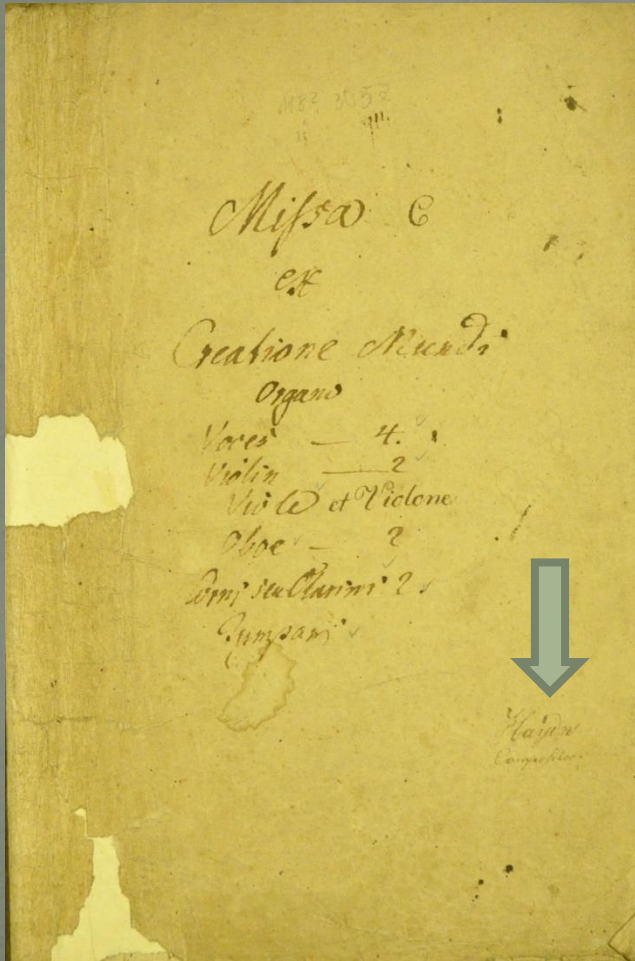 Missa C
ex
Creatione Mundi
Organo
Voces — 4.
Violin — 2
Viole et Violone
Oboe — 2
Corni seu Clarini 2
Tympani
Haydn